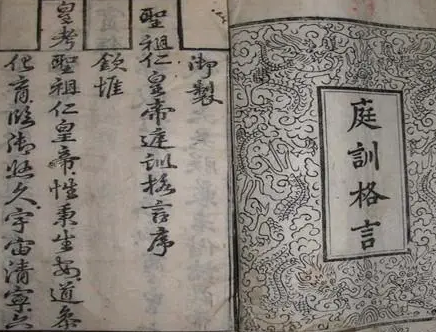 庭訓格言
御製
聖祖仁皇帝庭訓格言序
欽惟
皇考聖祖仁皇帝性秉生安道叅
化育臨御悠久宇宙清寧六